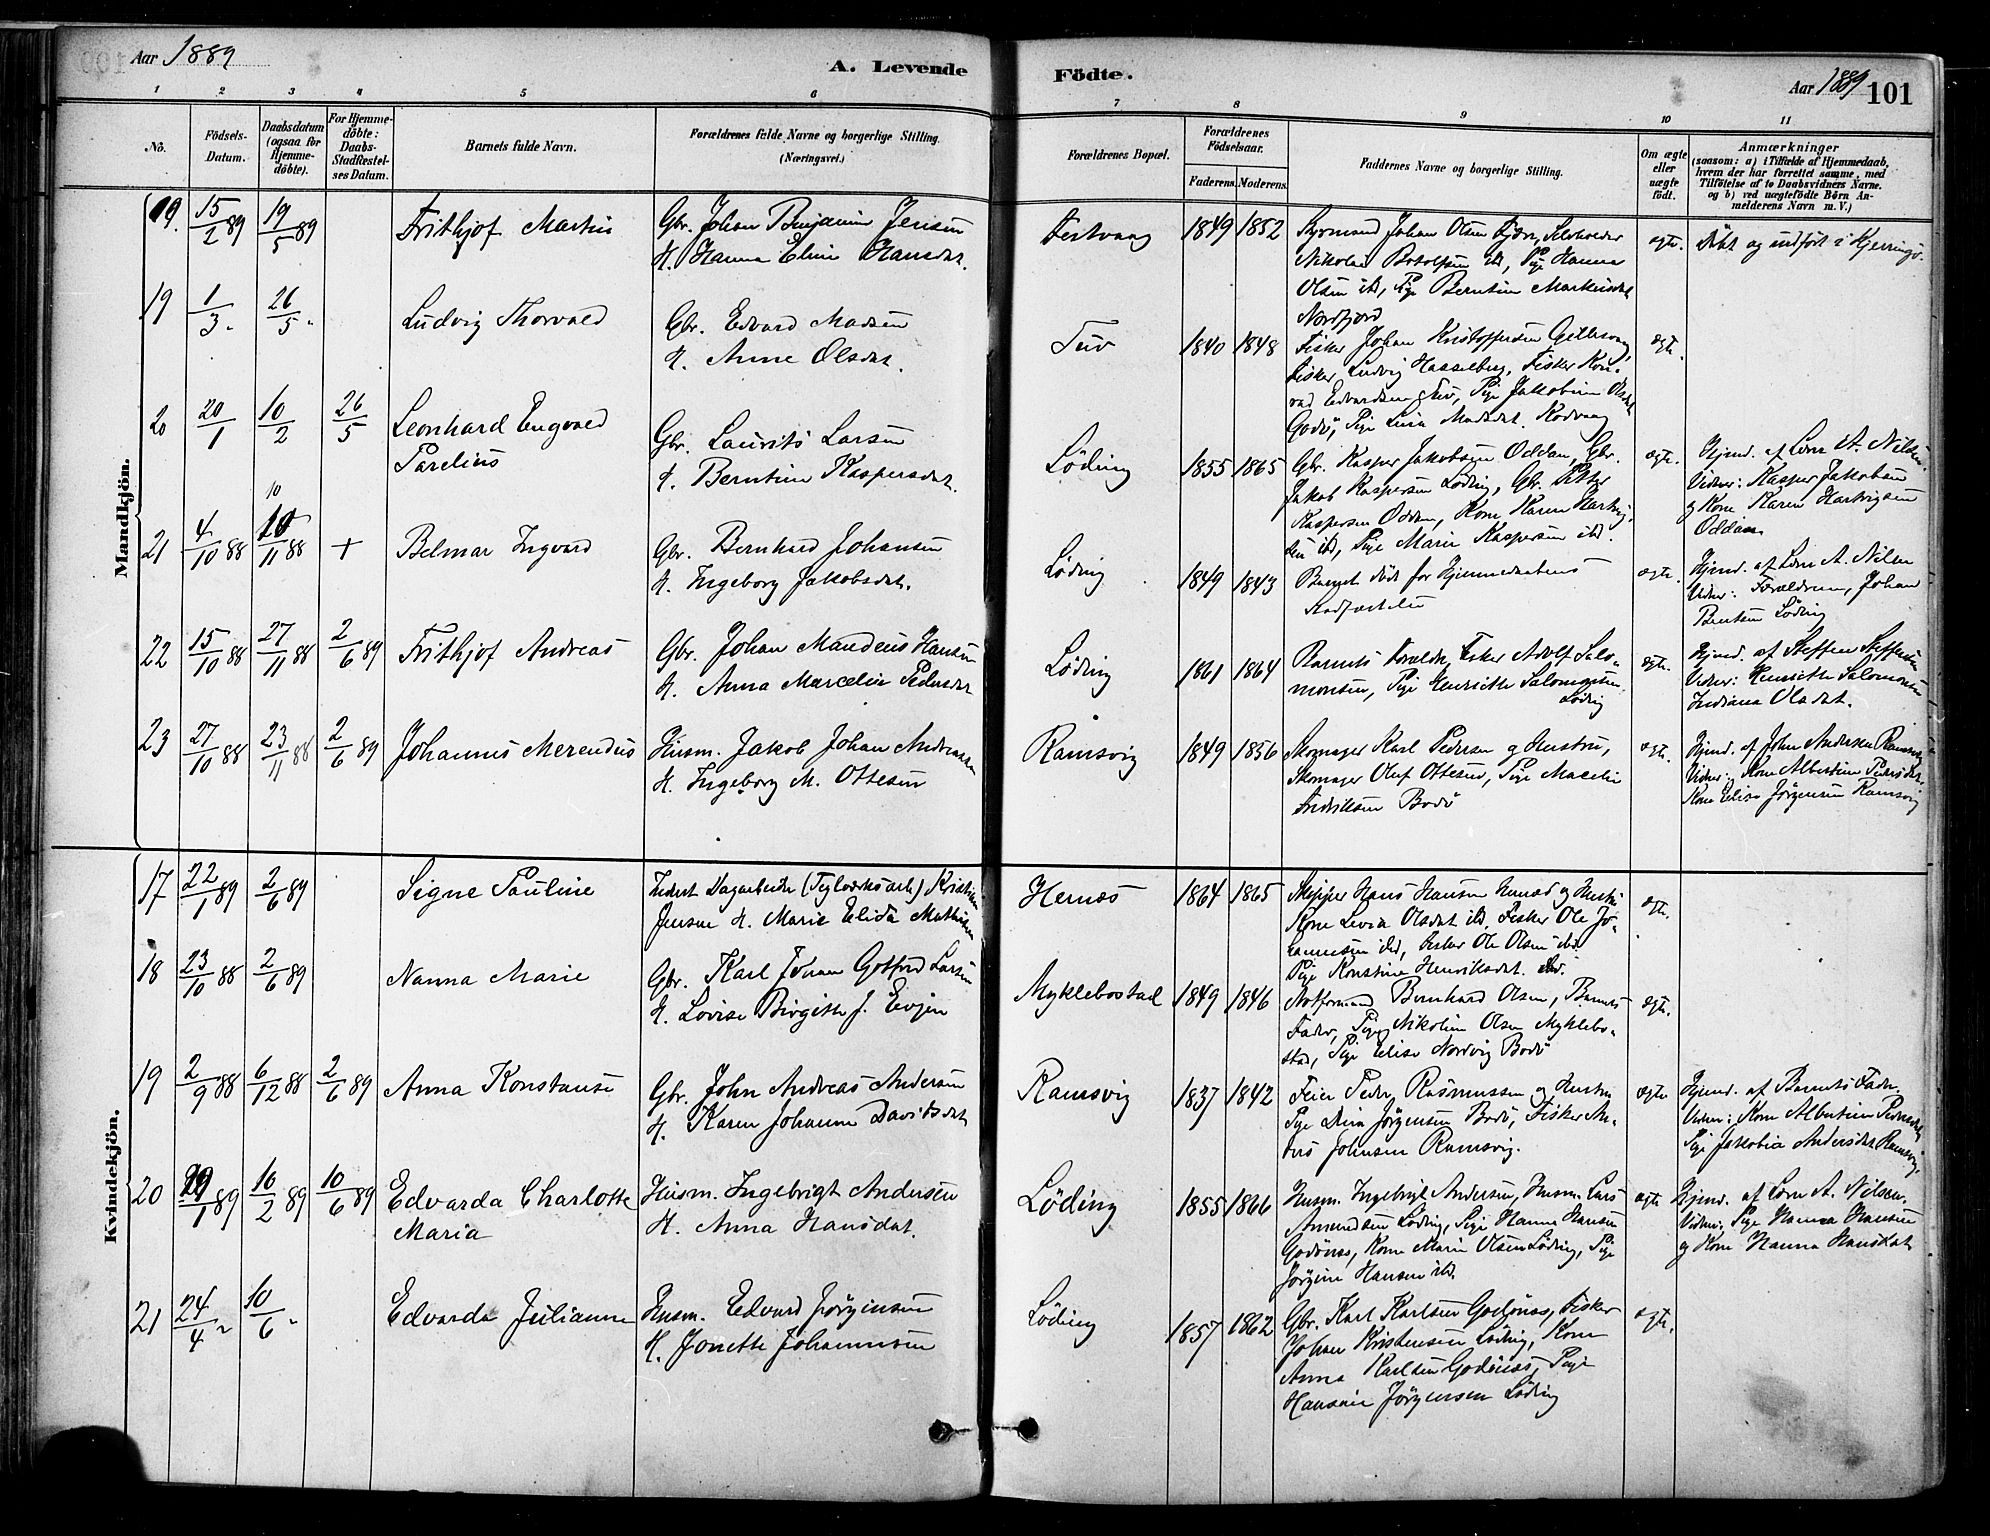 Aar 1889
A. Levende
Födte.
Aar 1889 101
1 2 3 4 5 6 7 8 9 10 11
No.
Födsels-Datum.
Daabsdatum (ogsaa for Hjemme-döbte).
For Hjemme-döbte: Daabs-Stadfæstel-ses Datum.
Barnets fulde Navn.
Forældrenes fulde Navne og borgerlige Stilling.
(Næringsvei.)
Forældrenes Bopæl.
Forældrenes Födselsaar.
Faderens. Moderens.
Faddernes Navne og borgerlige Stilling.
Om ægte eller uægte født.
Anmærkninger
(saasom: a) i Tilfælde af Hjemmedaab, hvem der har forrettet samme, med Tilföielse af to Daabsvidners Navne. og b) ved uægtefödte Börn Anmelderens Navn m. V.)
Mandkjön.
19. 15/2 89 19/5 89 Frithjof Martin
Gbr. Johan Benjamin Jensen
H. Hanna Eline Hansdat.
Festvaag 1849 1852
Styrmand Johan Olsen Fjær, Selveier
Nikolai Botolfsen ibd, Pige Hanna
Olsen ibd, Pige Berntine Markusdat
Nordfjord
ægte. Døbt og indført i Kjerringö.
19 1/3 " 26/5 " Ludvig Thorvald
Gbr. Edvard Madsen
H. Anne Olsdat.
Tuv 1840 1848
Fisker Johan Kristoffersen Gillesvaag,
Fisker Ludvig Hasselberg, Fisker Kon-
rad Edvardsen Tuv, Pige Jakobine Olsdat
Godö, Pige Lina Madsdat. Kodvaag
ægte.
20 20/1 10/2 26/5 Leonhard Engvald
Parelius
Gbr. Laurits Larsen
H. Berntine Kaspersdat.
Löding 1855 1865
Gbr. Kasper Jakobsen Oddan, Gbr.
Jakob Kaspersen Löding, Gbr. Petter
Kaspersen Oddan, Kone Karen Hartvig-
sen ibd, Pige Marie Kaspersen ibd.
ægte. Hjemd. af Lorn A. Nilsen.
Vidner: Kasper Jakobsen
og Kone Karen Hartvigsen
Oddan
21 4/10 88 10/11 88 + Belmar Ingvard
10
Gbr. Bernhard Johansen
H. Ingeborg Jakobsdat.
Löding 1849 1843
Barnet död før Hjemmedaabens
Stadfæstelse
ægte. Hjemd. af Lorn A. Nilsen
Vidner: Forældrene, Johan
Berntsen Löding
22 15/10 88 27/11 88 2/6 89 Frithjof Andreas
Gbr. Johan Mandeus Hansen
H. Anna Marcelie Pedersdat
Löding 1861 1864
Barnets Forældre, Fisker Adolf Salo-
monsen, Pige Henriette Salomonsen
Löding
ægte. Hjemd. af Steffen Steffensen
Vidner: Henriette Salomonsen
Indiana Olsdat.
23 27/10 88 23/11 88 2/6 89 Johannes Merendus
Husm. Jakob Johan Andreassen
H. Ingeborg M. Ottesen
Ramsvig 1849 1856
Skomager Karl Pedersen og Hustru,
Skomager Oluf Ottesen, Pige Macelie
Fredriksen Bodö
ægte. Hjemd. af John Andersen Ramsvig
Vidner: Kone Albertine Pedersdat.
Kone Elise Jörgensen Ramsvig
Kvindekjön.
17 22/1 89 2/6 89 Signe Pauline
Inderst Dagarbeider (Teglværksarb.) Kristian
Jensen H. Marie Elida Mathisen
Hernæs 1864 1865
Skipper Hans Hansen Hernæs og Hustru
Kone Levia Olsdat ibd, Fisker Ole Jo-
hannesen ibd, Fisker Ole Olsen ibd
Pige Konstine Henriksdat. ibd.
ægte.
18 23/10 88 2/6 89 Nanna Marie
Gbr. Karl Johan Gotfred Larsen
H. Lovise Birgitte J. Evjen
Myklebostad 1849 1846
Notformand Bernhard Olsen, Barnets
Fader, Pige Nikoline Olsen Myklebo-
stad, Pige Elise Nordvig Bodö
ægte.
19 2/9 88 6/12 88 2/6 89 Anna Konstanse
Gbr. John Andreas Andersen
H. Karen Johanne Davidsdat
Ramsvig 1837 1842
Feier Peder Rasmussen og Hustru
Pige Dina Jörgensen Bodö, Fisker An-
ders Johnsen Ramsvig.
ægte Hjemd. af Barnets Fader.
Vidner: Kone Albertine Pedersdat
Pige Jakobia Andersdat Ramsvig,
20 1/89 16/2 89 10/6 89 Edvarda Charlotte
Maria
Husm. Ingebrigt Andersen
H. Anna Hansdat.
Löding 1855 1866
Husm. Ingebrigt Andersen, Husm. Lars
Amundsen Löding, Pige Hanna Hansen
Godönes, Kone Marie Olsen Löding, Pige
Jörgine Hansen ibd
ægte Hjemd. af Lorn A. Nilsen.
Vidner: Pige Hanna Hansen
og Kone Hanna Hansdat
21 24/4 " 10/6 " Edvarda Julianne
Husm. Edvard Jörginsen
H. Jonette Johannesen
Löding 1857 1862
Gbr. Karl Karlsen Godönes, Fisker
Johan Kristensen Löding, Kone
Anna Karlsen Godönes, Pige
Hansine Jörgensen Löding
ægte.